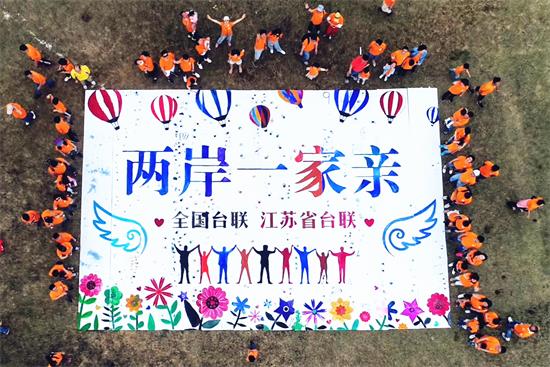 两岸一家亲
全国台联 江苏省台联